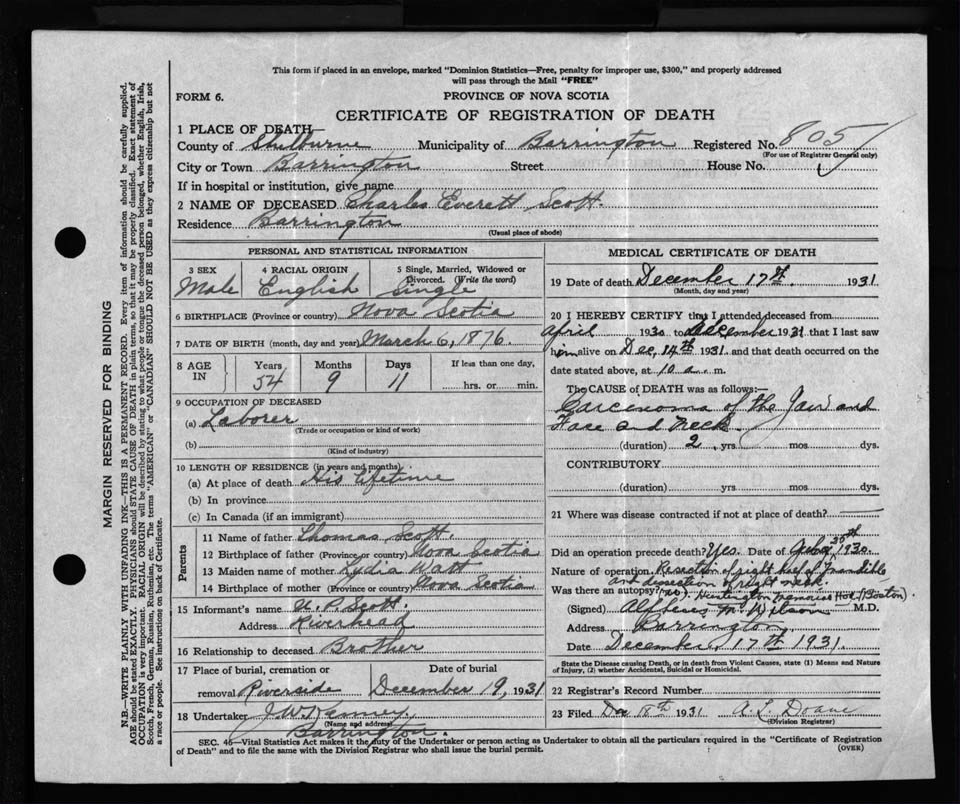 This form if placed in an envelope, marked "Dominion Statistics—Free, penalty for improper use, $300," and properly addressed
will pass through the Mail "FREE"
FORM 6.
PROVINCE OF NOVA SCOTIA
CERTIFICATE OF REGISTRATION OF DEATH
1 PLACE OF DEATH—
County of Shelburne Municipality of Barrington Registered No. 805
(For use of Registrar General only)
City or Town Barrington Street House No.
If in hospital or institution, give name
2 NAME OF DECEASED Charles Everett Scott.
Residence Barrington
(Usual place of abode)
PERSONAL AND STATISTICAL INFORMATION
3 SEX Male
4 RACIAL ORIGIN English
5 Single, Married, Widowed or
Divorced. (Write the word)
Single
6 BIRTHPLACE (Province or country) Nova Scotia
7 DATE OF BIRTH (month, day and year) March 6, 1876.
8 AGE IN
Years 54
Months 9
Days 11
If less than one day,
hrs. or min.
9 OCCUPATION OF DECEASED
(a) Laborer
(Trade or occupation or kind of work)
(b)
(Kind of industry)
10 LENGTH OF RESIDENCE (in years and months)
(a) At place of death His lifetime
(b) In province
(c) In Canada (if an immigrant)
Parents
11 Name of father Thomas Scott.
12 Birthplace of father (Province or country) Nova Scotia
13 Maiden name of mother Lydia Watt
14 Birthplace of mother (Province or country) Nova Scotia
15 Informant's name Scott.
Address Riverhead
16 Relationship to deceased Brother
17 Place of burial, cremation or
removal Riverside
Date of burial
December 19, 1931
18 Undertaker
(Name and address)
Barrington.
MEDICAL CERTIFICATE OF DEATH
19 Date of death December 17th. 1931
(Month, day and year)
20 I HEREBY CERTIFY that I attended deceased from
April 1930 to December 1931 that I last saw
him alive on Dec, 14th 1931 and that death occurred on the
date stated above, at 10 a. m.
The CAUSE OF DEATH was as follows:—
Carcinoma of the Jaw and
Face and neck.
(duration) 2 yrs mos dys.
CONTRIBUTORY
(duration) yrs. mos. dys.
21 Where was disease contracted if not at place of death?
Did an operation precede death? Yes. Date of 1930.
Nature of operation Resection of right half of mandible
and dissection of right neck.
Was there an autopsy? (no). Huntington Memorial Hos. (Boston).
(Signed) M. Wilson M.D.
Address Barrington
Date December 17th 1931.
State the Disease causing Death, or in death from Violent Causes, state (1) Means and Nature
of Injury, (2) whether Accidental, Suicidal or Homicidal.
22 Registrar's Record Number
23 Filed Dec 18th 1931 A. L. Doane
(Division Registrar)
SEC. 46—Vital Statistics Act makes it the duty of the Undertaker or person acting as Undertaker to obtain all the particulars required in the "Certificate of Registration
of Death" and to file the same with the Division Registrar who shall issue the burial permit.
(OVER)
MARGIN RESERVED FOR BINDING
N.B.—WRITE PLAINLY WITH UNFADING INK—THIS IS A PERMANENT RECORD. Every item of information should be carefully supplied.
AGE should be stated EXACTLY. PHYSICIANS should STATE CAUSE OF DEATH in plain terms, so that it may be properly classified. Exact statement of
OCCUPATION is very important. RACIAL ORIGIN will be described by stating to what people or tongue the deceased person belonged, whether English, Irish,
Scotch, French, German, Russian, Ruthenian, etc. The terms "AMERICAN" or "CANADIAN" SHOULD NOT BE USED as they express citizenship but not
a race or people. See instructions on back of Certificate.